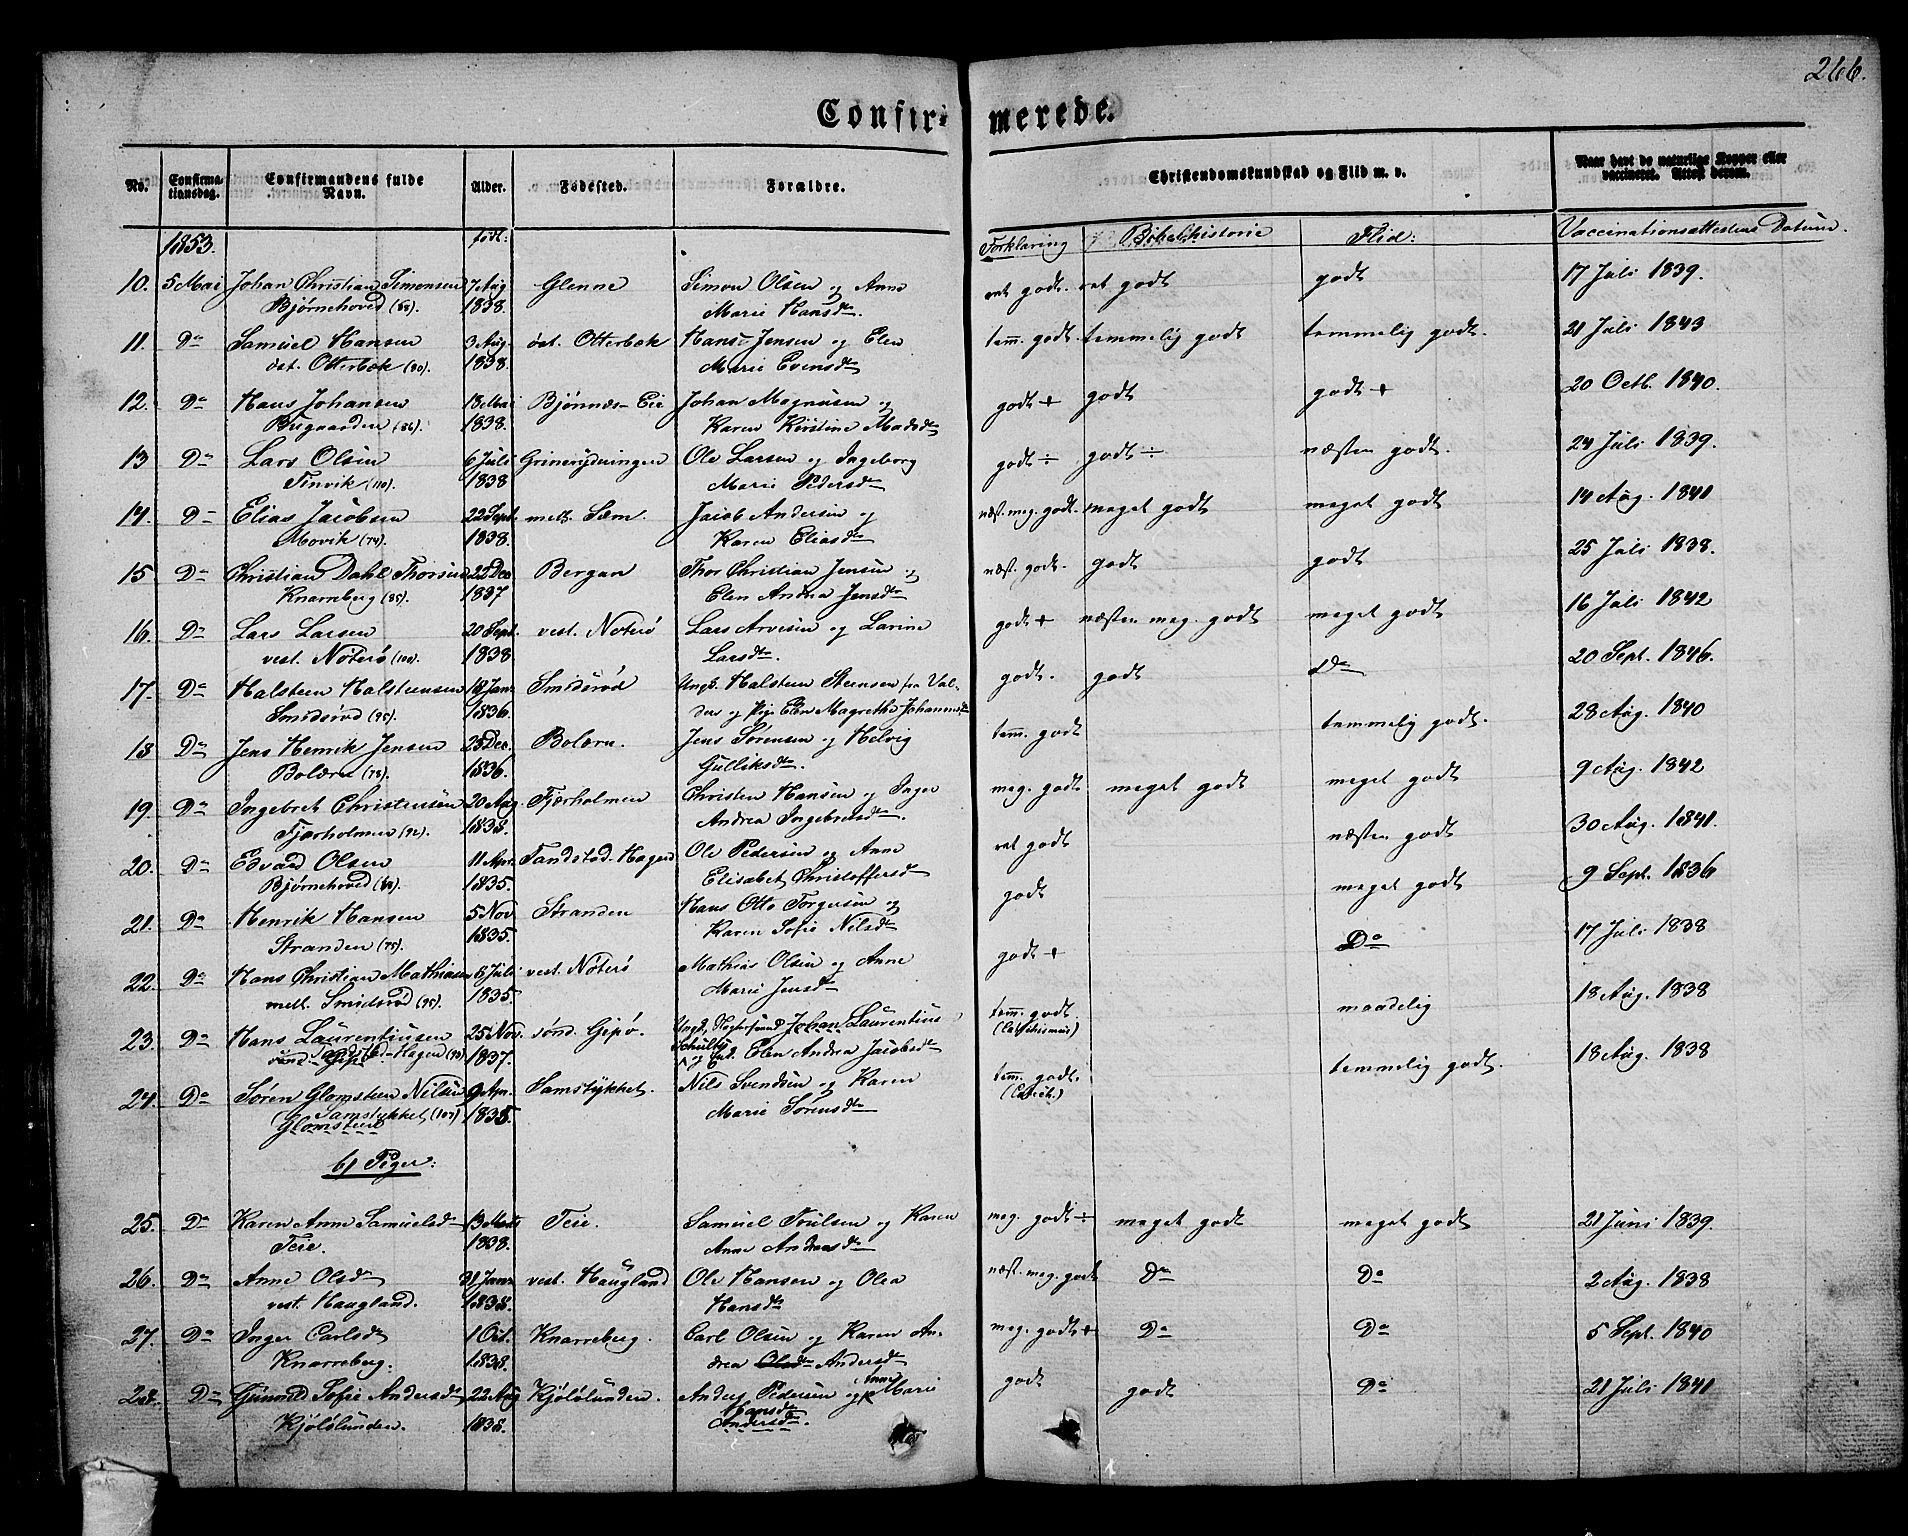 266.
Confirmerede.
No. Confirmationsdag. Confirmandens fulde Navn. Alder. Fødested. Forældre. Christendomskundskab og Flid m. v. Naar havt de naturlige Kopper eller vaccineret. Attest derom.
1853. født: Forklaring Bibelhistorie Flid: Vaccinationsattestens Datum.
10. 5 Mai Johan Christian Simonsen 7 Aug Glenne Simon Olsen og Anne ret godt. ret godt godt 17 Juli 1839.
Bjørnehoved 1838. Marie Hansdtr.
11. Do Samuel Hansen 3 Aug. öst. Otterbæk Hans Jensen og Elen tem. godt temmelig godt temmelig godt. 21 Juli 1843
öst. Otterbæk (80). 1838. Marie Evensdtr
12. Do Hans Johansen 13 Mai Bjönnæs-Eie Johan Magnusen og godt + godt godt + 20 Octb. 1840.
Buegaarden (86). 1838. Karen Kirstine Madsdtr
13 Do Lars Olsen 6 Juli Grinerydningen Ole Larsen og Ingeborg godt ÷ godt ÷ næsten godt. 24 Juli 1839.
Tinvik (110). 1838 Marie Pedersdtr
14. Do Elias Jacobsen 22 Sept. mell. Sæm. Jacob Andersen og næst. meg. godt. meget godt meget godt 14 Aug. 1841
Movik (74). 1838. Karen Eliasdtr
15 Do Christian Dahl Thorsen 22 Dec Bergan Thor Christian Jensen og næst. godt. godt godt 25 Juli 1838.
Knarreberg (85). 1837 Elen Andrea Jensdtr
16. Do Lars Larsen 20 Sept. vest. Nöterö Lars Arvesen og Larine godt + næsten meg. godt meget godt 16 Juli 1842
vest. Nöterö (100). 1838 Larsdtr.
17. Do Halsteen Halsteensen 18 Jan. Smidsröd Ungk. Halsteen Steensen fra Val- godt. godt Do 20 Sept. 1846.
Smidsröd (95). 1836. ders og Pige Elen Magrethe Johannesdtr
18 Do Jens Henrik Jensen 28 Dec. Bolærn. Jens Sörensen og Helvig tem. godt temmelig godt. 28 Aug. 1840
Bolærn (78). 1836. Gulliksdtr.
19. Do Ingebret Christensen 20 Aug. Fjærholmen Christen Hansen og Inger meg. godt meget godt meget godt 9 Aug. 1842
Fjærholmen (92). 1838. Andrea Ingebretsdtr.
20. Do Edvard Olsen 11 Apr. Tandstad-Hagen Ole Pedersen og Anne ret godt næsten godt 30 Aug. 1841.
Bjørnehoved 1835. Elisabet Christoffersdtr
21. Do Henrik Hansen 5 Nov Stranden Hans Otto Torgersen og godt meget godt 9 Sept. 1836
Stranden (75). 1835. Karen Sofie Nilsdtr
22. Do Hans Christian Mathiasen 8 Juli vest. Nöterö Mathias Olsen og Anne godt + Do 17 Juli 1838
mell. Smidsröd (95). 1835. Marie Jensdtr
23. Do Hans Laurentiusen 25 Nov. sönd. Gipö. Ungk. Johan Laurentius tem. godt. maadelig 18 Aug. 1838
Tandstad-Hagen (90) 1837. Schultz og Elen Andrea Jacobsdtr (Catechismus)
24. Do Sören Glomsteen Nilsen 9 Apr. Samstykket. Nils Svendsen og Karen tem. godt. temmelig godt. 18 Aug. 1838
Samstykket (107) 1838. Marie Sörensdtr (Catech.)
Glomsteen
b) Piger:
25. Do Karen Anne Samuelsdtr 13 Marts Teie. Samuel Trulsen og Karen meg. godt ÷ meget godt meget godt 21 Juni 1839.
Teie. 1838. Anne Andreasdtr
26. Do Anne Olsdtr 31 Jan. vest. Haugland Ole Hansen og Olea næst. meg. godt Do Do 2 Aug. 1838
vest. Haugland. 1838. Hansdtr
27. Do Inger Carlsdtr 1 Oct. Knarreberg. Carl Olsen og Karen An- meg. godt + Do Do 5 Sept. 1840
Knarreberg. 1838. drea Olsdtr Andersdtr
28. Do Gunnild Sofie Andersdtr 22 Aug Kjölölunden. Anders Pedersen og Anne Marie godt godt Do 21 Juli 1841
Kjölölunden. 1838. Hansdtr
Andersdtr.